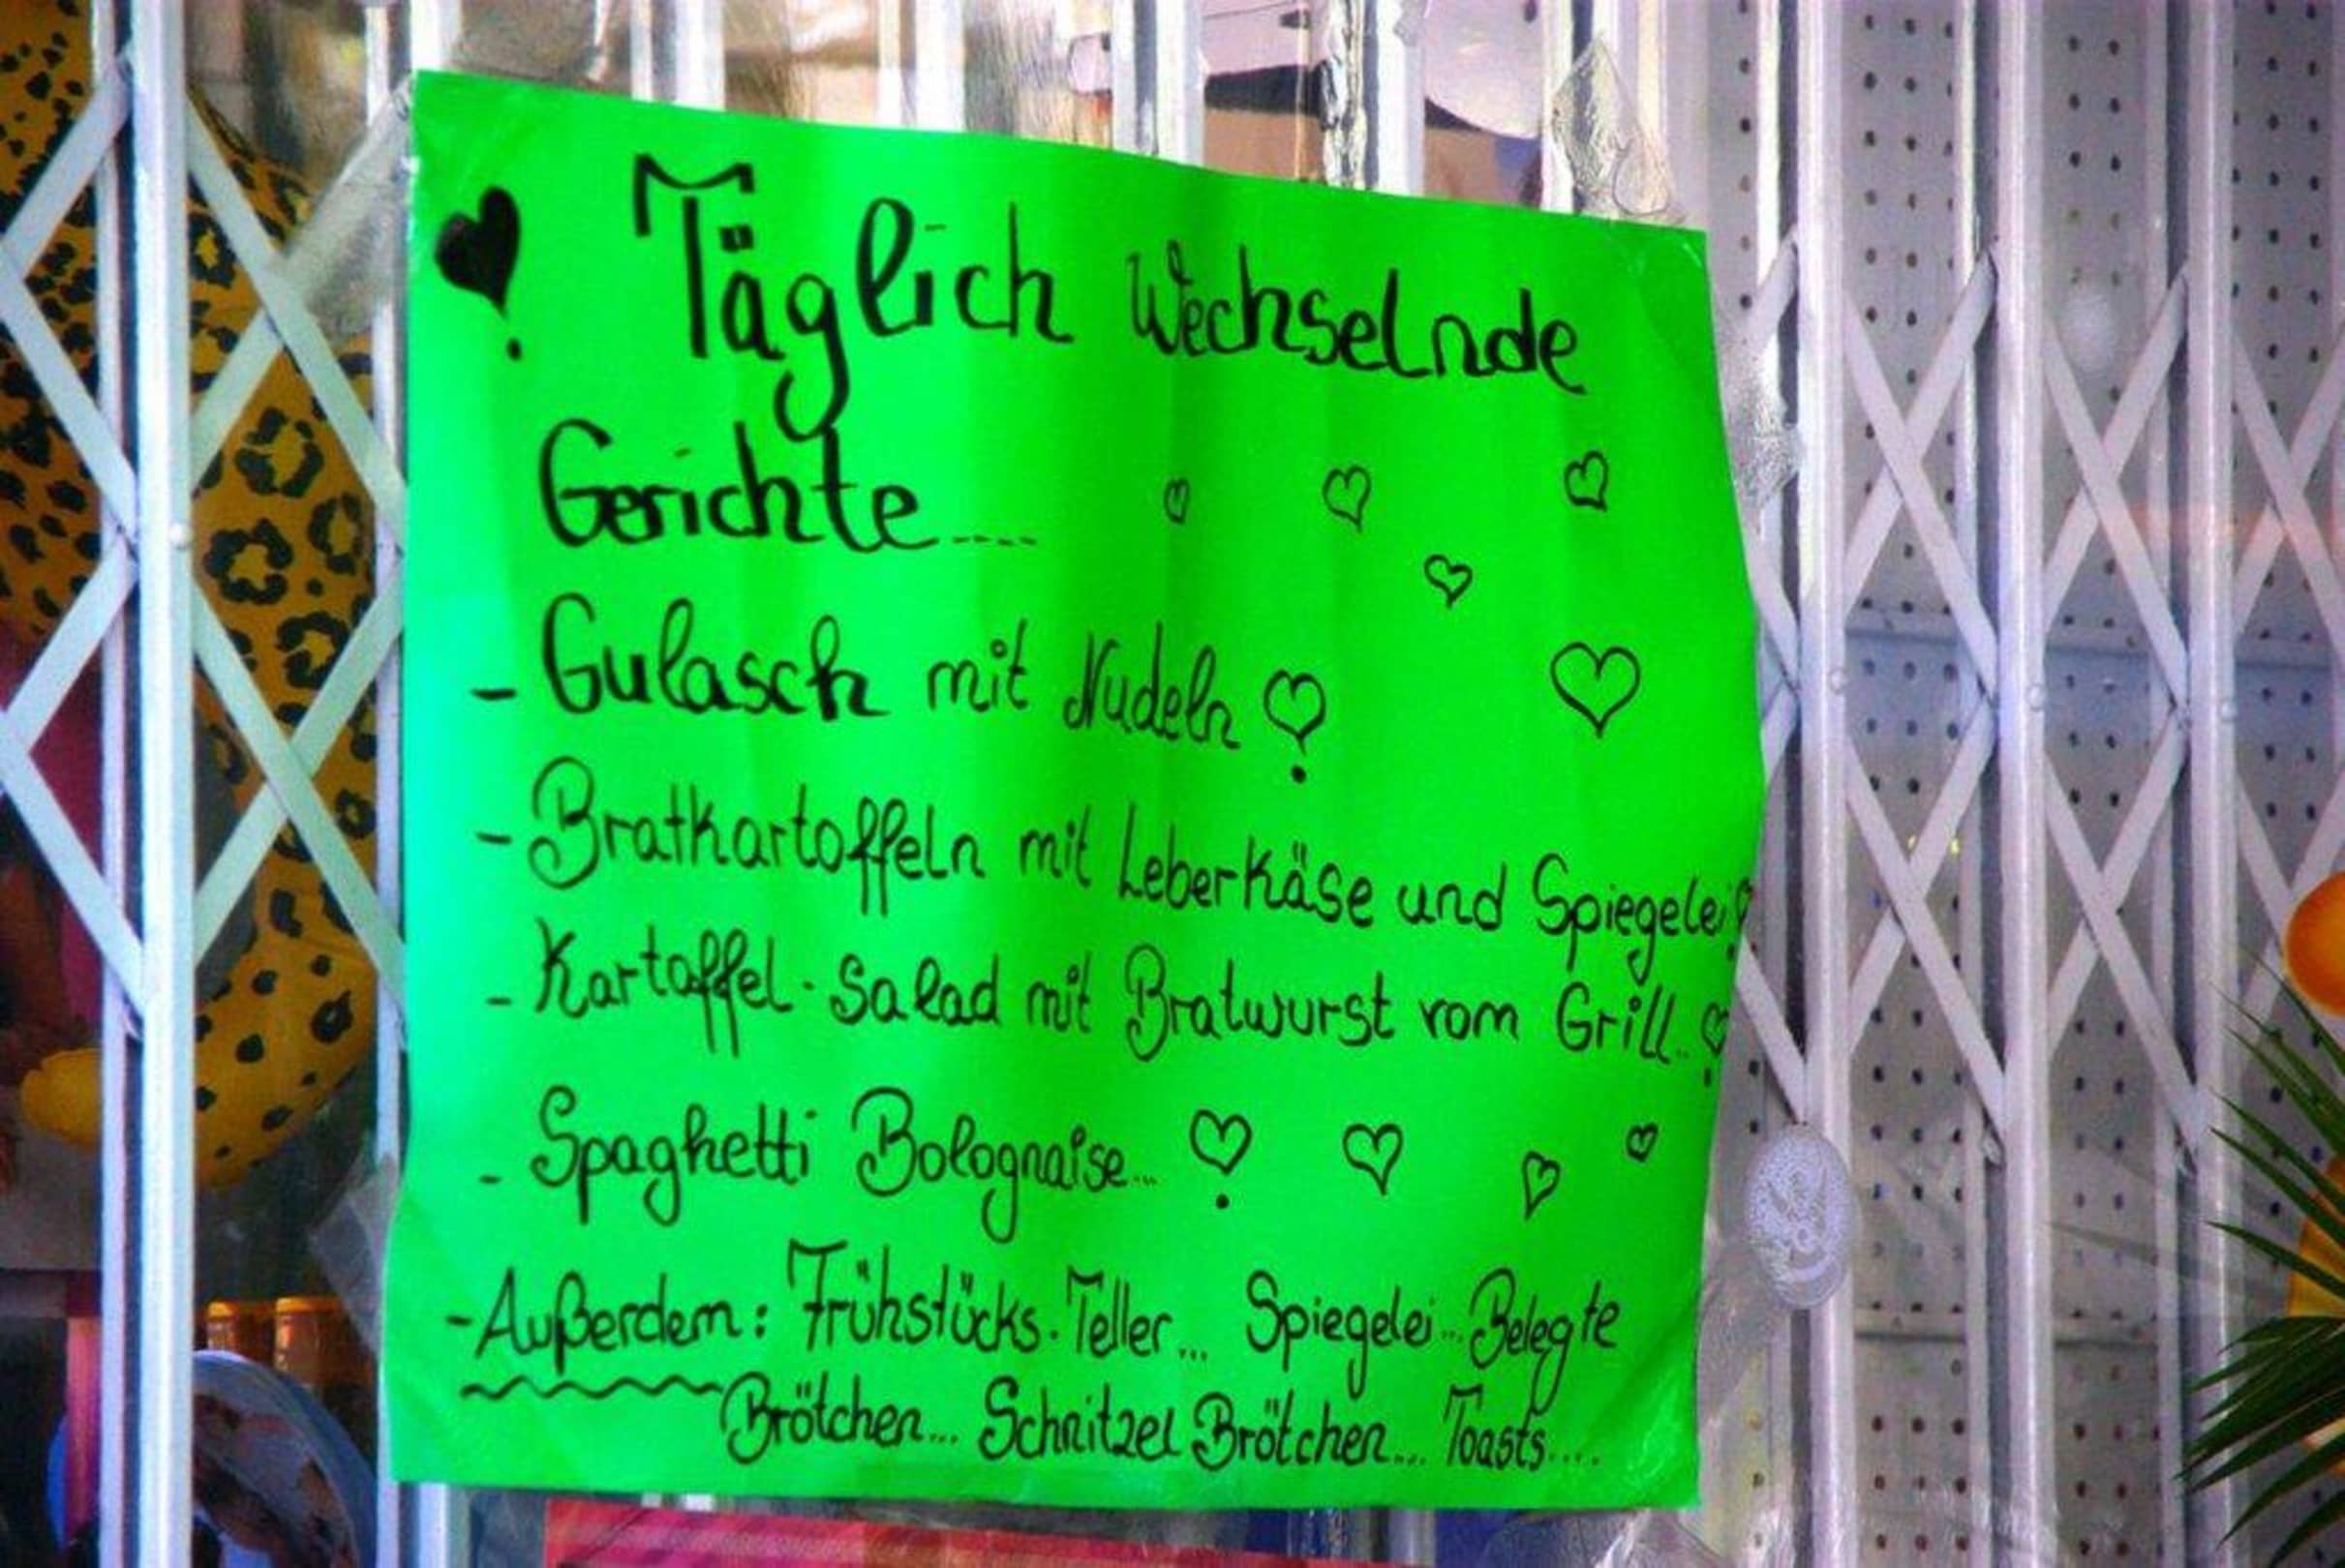 Täglich Wechselnde
Gerichte....
- Gulasch mit Nudeln
- Bratkartoffeln mit Leberkäse und Spiegelei
- Kartoffel-Salad mit Bratwurst vom Grill..
- Spaghetti Bolognaise...
- Außerdem: Frühstücks-Teller... Spiegelei... Belegte
Brötchen... Schnitzel Brötchen... Toasts....